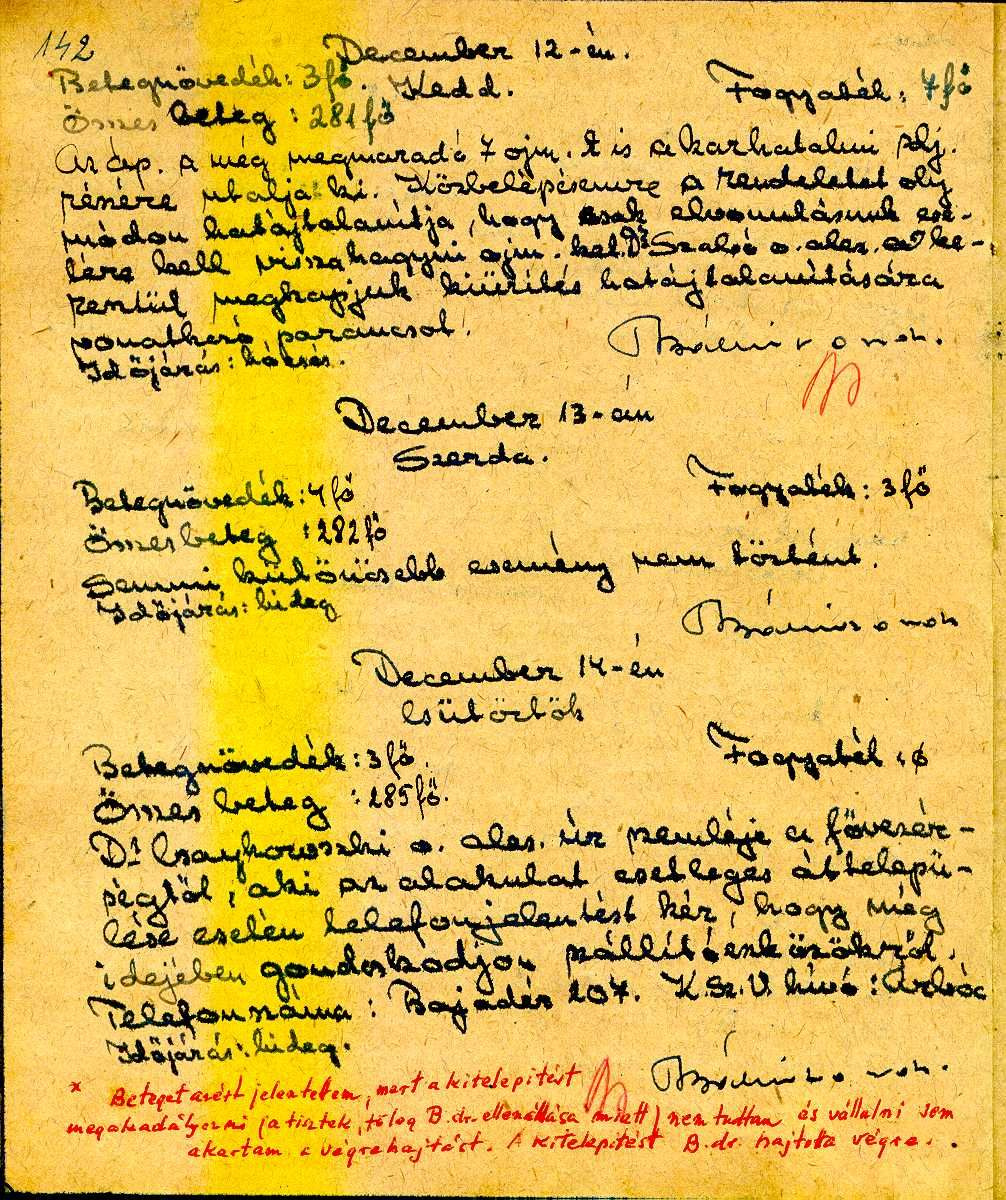 142
December 12-én.
Betegnövedék: 3 fő. Kedd. Fogyaték: 7 fő
Összes beteg: 281 fő
Az áp. a még megmaradó 7 ojm. t is a karhatalmi
részére utalja ki. Közbelépésemre a rendeletet oly
módon hatájtalanítja, hogy csak elvonulásunk ese-
tére kell visszahagyni ojm. ket. Dr Szabó o. alez. ke-
resztül megkapjuk kiürítés hatájtalanítására
vonatkozó parancsot.
Időjárás:
December 13-án
Szerda.
Betegnövedék: 4 fő Fogyaték: 3 fő
Összes beteg: 282 fő
Semmi különösebb esemény nem történt.
Időjárás: hideg
December 14-én
Csütörtök
Betegnövedék: 3 fő. Fogyaték: ø
Összes beteg: 285 fő.
Dr o. ales. úr szemléje a fővezér-
ségtől, aki az alakulat esetleges áttelepü-
lése esetén telefonjelentést kér, hogy még
idejében gondoskodjon szállítóeszközökről.
Telefonszáma: 107. K.Sz.V. hívó: Árbóc
Időjárás: hideg.
* Beteget azért jelentettem, mert a kitelepítést
megakadályozni (a tisztek, főleg B. dr. ellenállása miatt) nem tudtam és vállalni sem
akartam a végrehajtást. A kitelepítést B. dr. hajtotta végre.